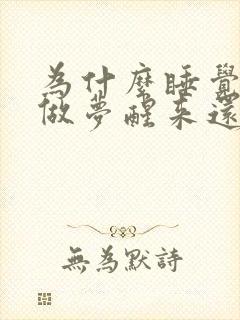 為什麼睡覺
做夢醒來還
無為默詩